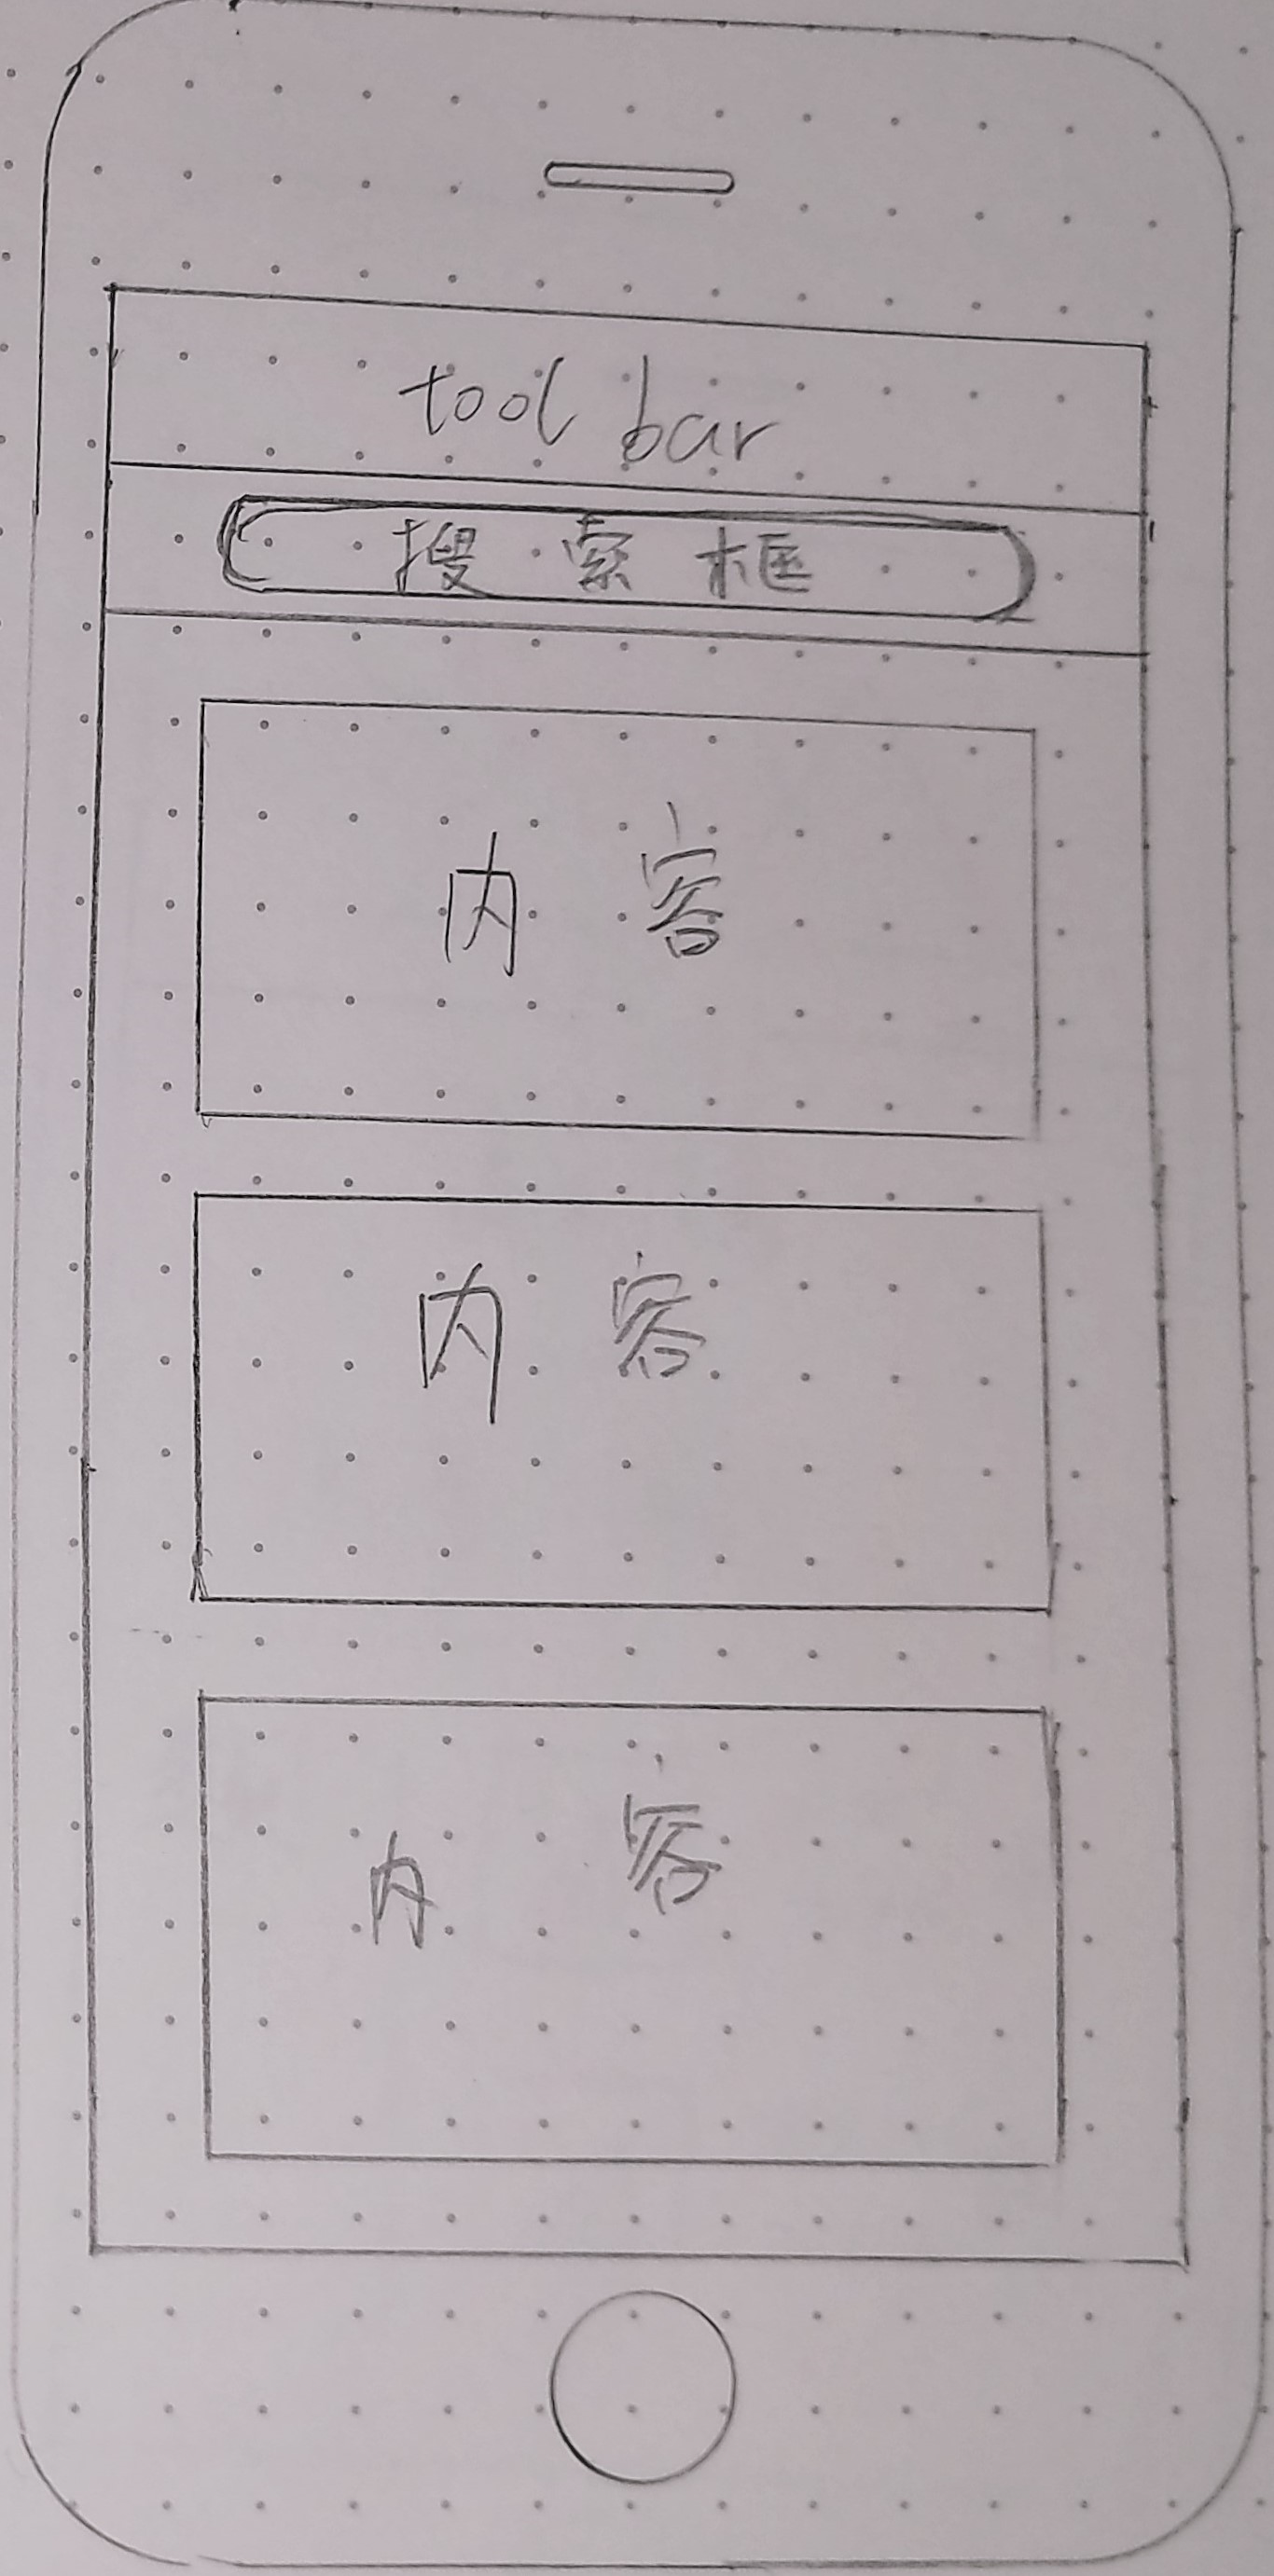 tool bar
搜索框
内容
内容
内容